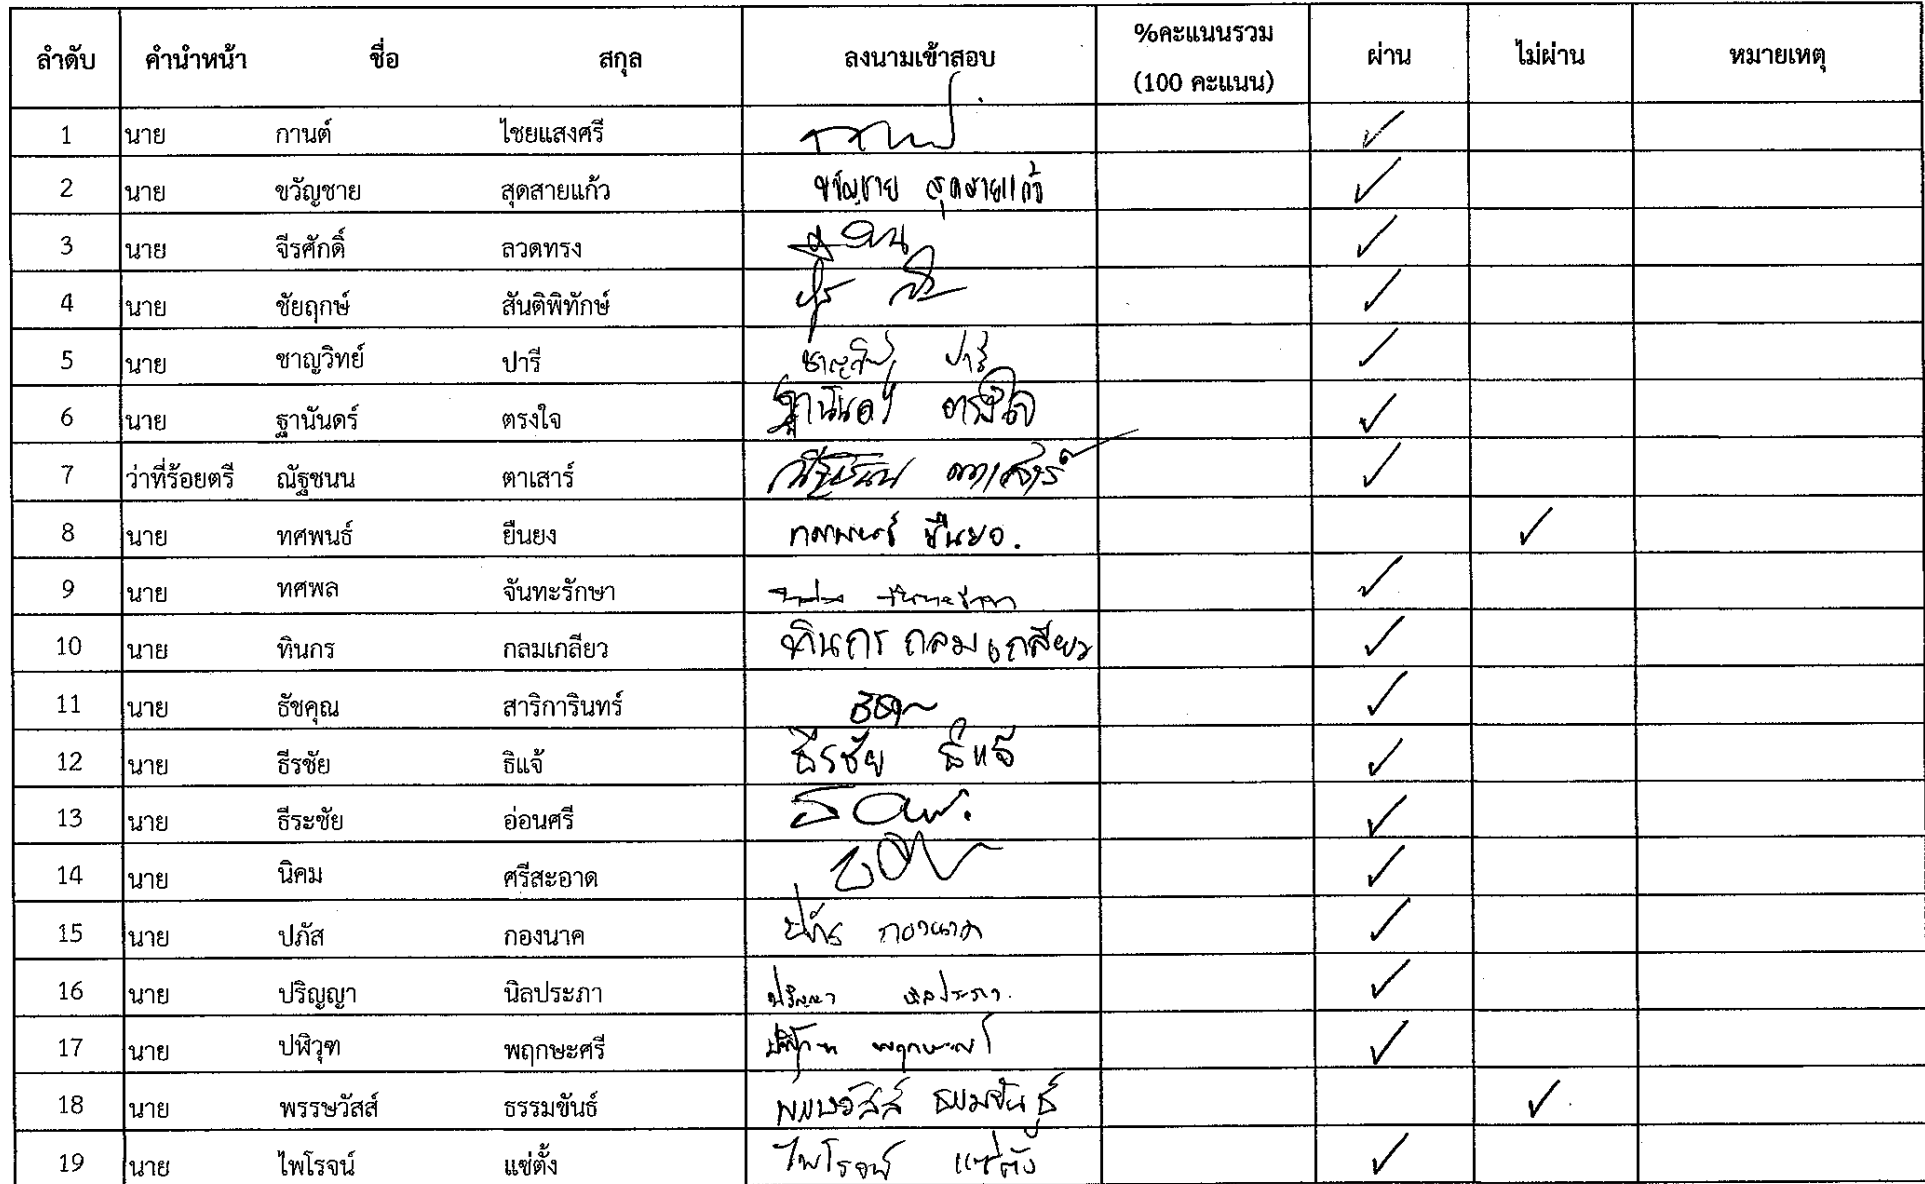 ลำดับ คำนำหน้า ชื่อ สกุล ลงนามเข้าสอบ %คะแนนรวม (100 คะแนน) ผ่าน ไม่ผ่าน หมายเหตุ
1 นาย กานต์ ไชยแสงศรี ✓
2 นาย ขวัญชาย สุดสายแก้ว ขวัญชาย สุดสายแก้ว ✓
3 นาย จีรศักดิ์ ลวดทรง ✓
4 นาย ชัยฤกษ์ สันติพิทักษ์ ✓
5 นาย ชาญวิทย์ ปารี ชาญวิทย์ ปารี ✓
6 นาย ฐานันดร์ ตรงใจ ฐานันดร์ ตรงใจ ✓
7 ว่าที่ร้อยตรี ณัฐชนน ตาเสาร์ ณัฐชนน ตาเสาร์ ✓
8 นาย ทศพนธ์ ยืนยง ทศพนธ์ ยืนยง. ✓
9 นาย ทศพล จันทะรักษา ✓
10 นาย ทินกร กลมเกลียว ทินกร กลมเกลียว ✓
11 นาย ธัชคุณ สาริการินทร์ ✓
12 นาย ธีรชัย ธิแจ้ ธีรชัย ธิแจ้ ✓
13 นาย ธีระชัย อ่อนศรี ✓
14 นาย นิคม ศรีสะอาด ✓
15 นาย ปภัส กองนาค ปภัส กองนาค ✓
16 นาย ปริญญา นิลประภา ปริญญา นิลประภา. ✓
17 นาย ปฬิวุฑ พฤกษะศรี ✓
18 นาย พรรษวัสส์ ธรรมขันธ์ พรรษวัสส์ ธรรมขันธ์ ✓
19 นาย ไพโรจน์ แซ่ตั้ง ไพโรจน์ แซ่ตั้ง ✓